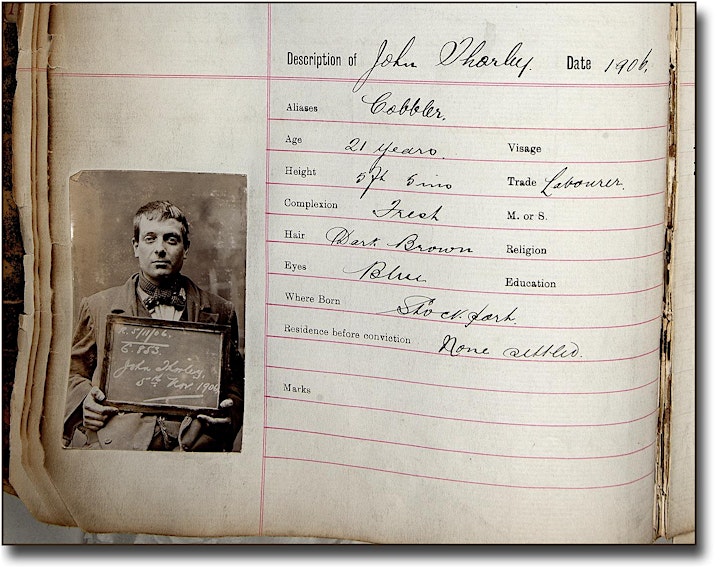 Description of John Thorley. Date 1906.
Aliases Cobbler.
Age 21 years. Visage
Height 5ft 5ins Trade Labourer.
Complexion Fresh M. or S.
Hair Dark Brown Religion
Eyes Blue Education
Where Born Stockport.
Residence before conviction None settled.
Marks
R. 5/11/06
6.853
John Thorley,
5th Nov. 1906